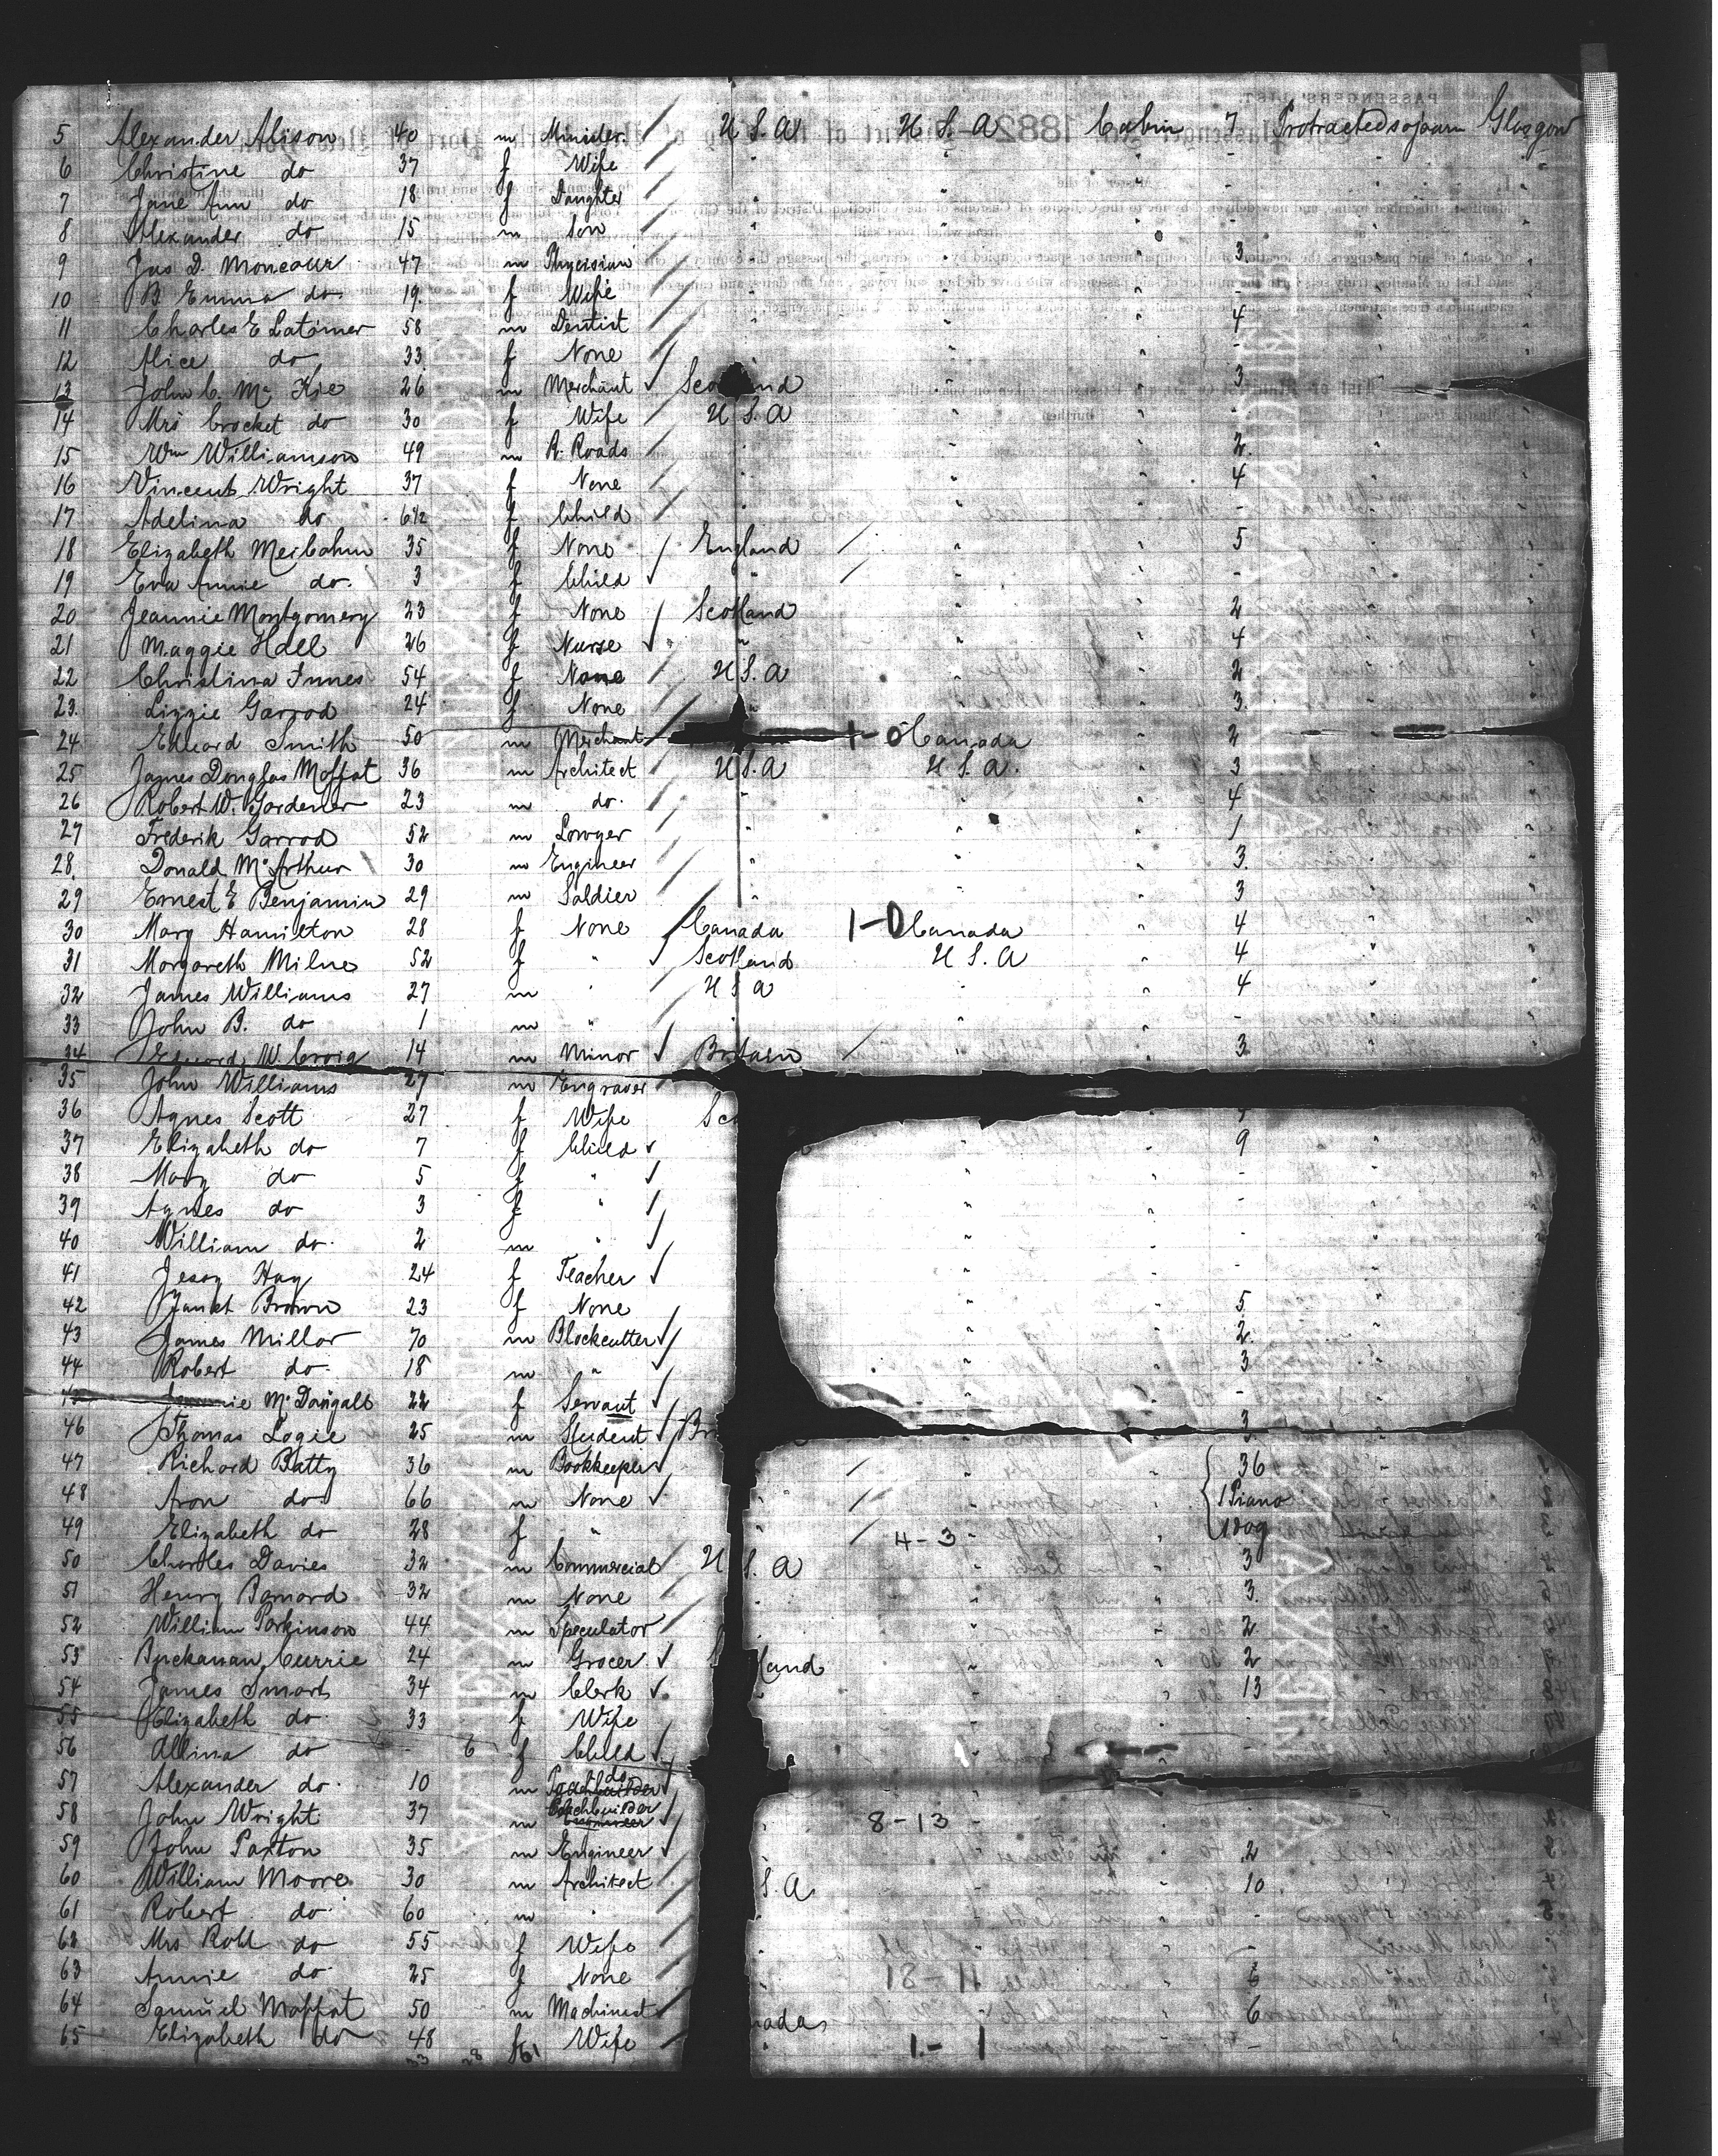 5 Alexander Alison 40 m Minister U S. A U. S. A Cabin 7 Protracted sojourn Glasgow
6 Christine do 37 f Wife " " " - " "
7 Jane Ann do 18 f Daughter " " " - " "
8 Alexander do 15 m Son " " " - " "
9 Jas D. Moncaur 47 m Physician " " " 3 " "
10 B Emma do 19. f Wife " " " - " "
11 Charles E Latimer 58 m Dentist " " " 4 " "
12 Alice do 33 f None " " " - " "
13 John C. Mc Kie 26 m Merchant Scotland " " 3 " "
14 Mrs Crocket do 30 f Wife U S. A " " - " "
15 Wm Williamson 49 m R. Roads " " " 2. " "
16 Vincent Wright 37 f None " " " 4 " "
17 Adelina do 6 1/2 f Child " " " - " "
18 Elizabeth Meibohm 35 f None England " " 5 " "
19 Eva Annie do. 3 f Child " " " - " "
20 Jeannie Montgomery 23 f None Scotland " " 2 " "
21 Maggie Hall 26 f Nurse " " " 4 " "
22 Christina Innes 54 f None U S. A " " 2. " "
23. Lizzie Garrod 24 f None " " " 3. " "
24 Edward Smith 50 m Merchant 1-0 Canada " 2 " "
25 James Douglas Moffat 36 m Architect U S. A U S. A. " 3 " "
26 Robert W. Gardener 23 m do. " " " 4 " "
27 Frederik Garrod 52 m Lawyer " " " 1 " "
28. Donald McArthur 30 m Engineer " " " 3. " "
29 Ernest E Benjamin 29 m Soldier " " " 3 " "
30 Mary Hamilton 28 f None Canada 1-0 Canada " 4 " "
31 Margareth Milne 52 f " Scotland U S. A " 4 " "
32 James Williams 27 m " U S A " " 4 " "
33 John B. do 1 m " " " - " "
34 Edward W. Craig 14 m Minor Britain " " 3 " "
35 John Williams 27 m Engraver
36 Agnes Scott 27 f Wife Sc
37 Elizabeth do 7 f Child 9 "
38 Mary do 5 f " " " - "
39 Agnes do 3 f " " " - "
40 William do. 2 m " " " - "
41 Jessy Hay 24 f Teacher " " - "
42 Janet Brown 23 f None " " 5. "
43 James Millar 70 m Blockcutter " " 2. "
44 Robert do. 18 m " " " 3 "
Mc Dougall 22 f Servant " " -
46 Thomas Logie 25 m Student Br 3.
47 Richard Batty 36 m Bookkeeper " " 36 "
48 Aron do 66 m None " " " 1 Piano
49 Elizabeth do 28 f " " 4-3 " 1 Dog
50 Charles Davies 32 m Commercial U S. A " " 3
51 Henry Barnard 32 m None " " " 3.
52 William Parkinson 44 m Speculator " " " 2.
53 Buckanan Currie 24 m Grocer land " " 2
54 James Smart 34 m Clerk " " " 13
55 Elizabeth do. 33 f Wife " " -
56 Allina do - 6 f Child -
57 Alexander do. 10 m do
58 John Wright 37 m Coachbuilder " 8-13
59 John Paxton 35 m Engineer " " 2
60 William Moore 30 m Architect S. A " " 10
61 Robert do 60 m " " " -
62 Mrs Robt do 55 f Wife " " " -
63 Annie do. 25 f None " 18-11 "
64 Samuel Moffat 50 m Machinist nada " " 6
65 Elizabeth do 48 f Wife " 1-1 " -